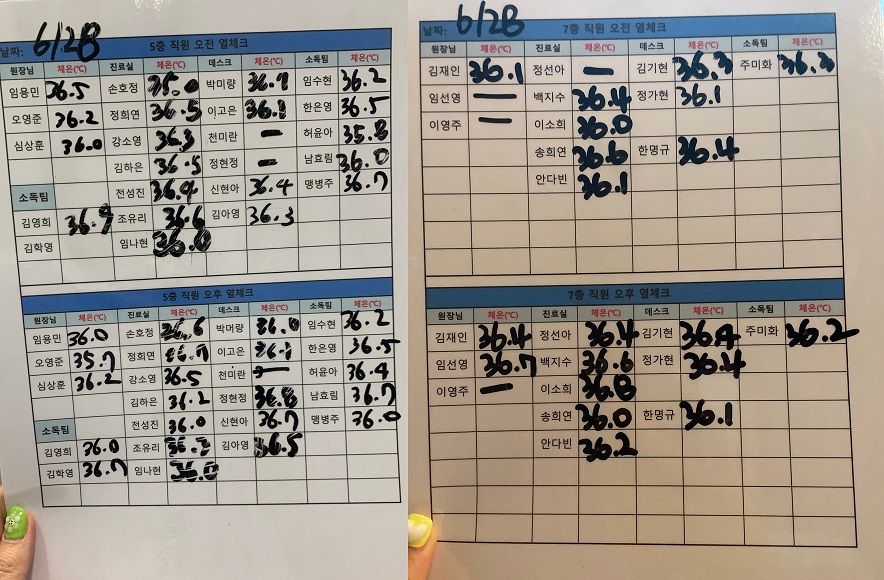 날짜: 6/28
5층 직원 오전 열체크
원장님 체온(℃) 진료실 체온(℃) 데스크 체온(℃) 소독팀 체온(℃)
임용민 36.5 손호정 35.0 박미량 36.7 임수현 36.2
오영준 36.2 정희연 36.5 이고은 36.1 한은영 36.5
심상훈 36.0 강소영 36.3 천미란 - 허윤아 35.8
김하은 36.5 정현정 - 남효림 36.0
소독팀 전성진 36.4 신현아 36.4 맹병주 36.7
김영희 36.9 조유리 36.6 김아영 36.3
김학영 임나현 36.0
5층 직원 오후 열체크
원장님 체온(℃) 진료실 체온(℃) 데스크 체온(℃) 소독팀 체온(℃)
임용민 36.0 손호정 36.6 박머량 36.0 임수현 36.2
오영준 35.7 정희연 이고은 한은영 36.5
심상훈 36.2 강소영 36.5 천미란 - 허윤아 36.4
김하은 36.2 정현정 36.8 남효림 36.7
소독팀 전성진 36.0 신현아 36.7 맹병주 36.0
김영희 36.0 조유리 김아영 36.5
김학영 36.7 임나현 36.0
날짜: 6/28
7층 직원 오전 열체크
원장님 체온(℃) 진료실 체온(℃) 데스크 체온(℃) 소독팀 체온(℃)
김재인 36.1 정선아 - 김기현 36.3 주미화 36.3
임선영 - 백지수 36.4 정가현 36.1
이영주 - 이소희 36.0
송희연 36.6 한명규 36.4
안다빈 36.1
7층 직원 오후 열체크
원장님 체온(℃) 진료실 체온(℃) 데스크 체온(℃) 소독팀 체온(℃)
김재인 36.4 정선아 36.4 김기현 36.4 주미화 36.2
임선영 36.7 백지수 36.6 정가현 36.4
이영주 - 이소희 36.8
송희연 36.0 한명규 36.1
안다빈 36.2